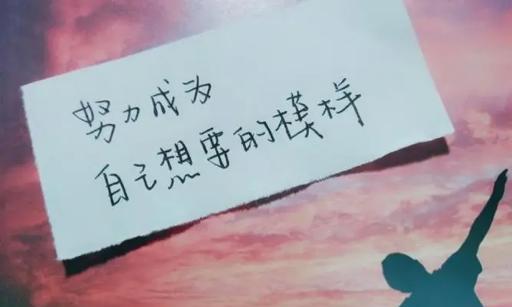 努力成为
自己想要的模样